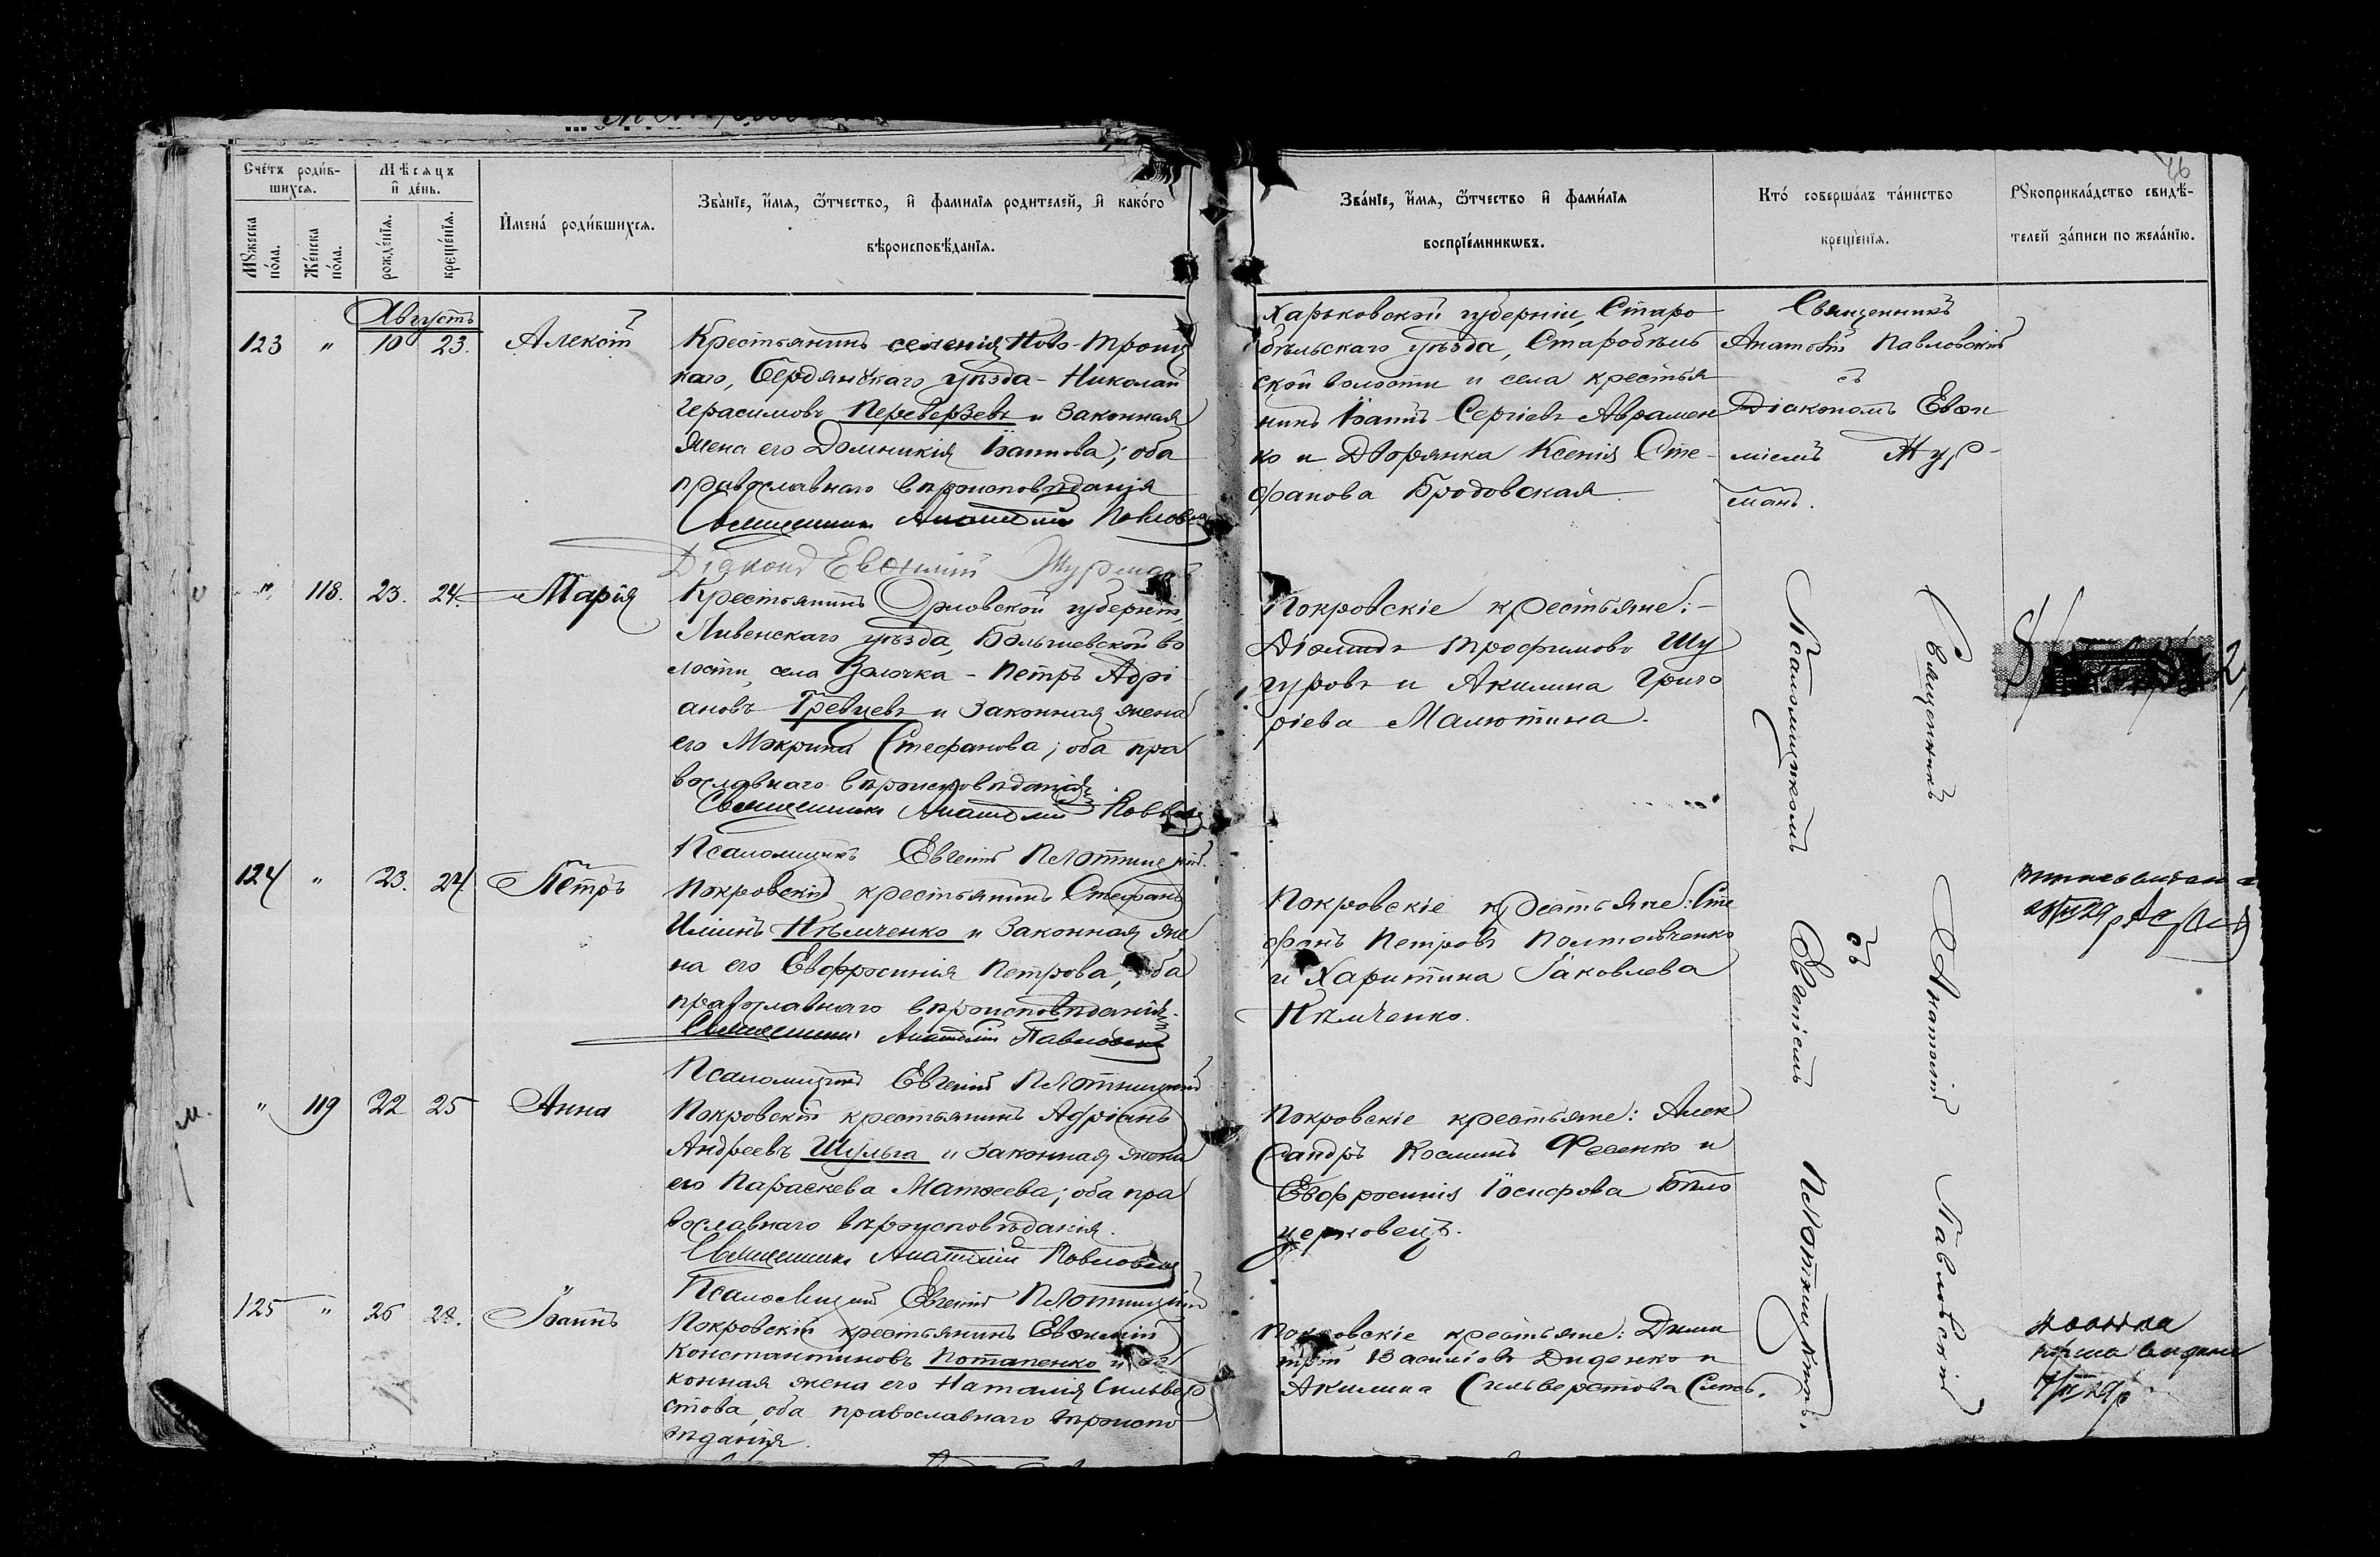 46
Счетъ родив-
шихся.
Мужеска пола.
Женска пола.
Мѣсяцъ
и день.
рожденія.
крещенія.
Имена родившихся.
Званіе, имя, отчество, и фамилія родителей, и какого
вѣроисповѣданія.
Званіе, имя, отчество и фамилія
воспріемниковъ.
Кто совершалъ таинство
крещенія.
Рукоприкладство свидѣ-
телей записи по желанію.
Августъ
123 " 10 23. Алексій
Крестьянинъ селенія Ново-Троиц
каго, Бердянскаго уѣзда - Николай
Герасимовъ Переверзевъ и законная
жена его Домникія Іоаннова; оба
православнаго вѣроисповѣданія
Священникъ Анатолій Павловскій
Діаконъ Евѳимій Журманъ
Харьковской губерніи, Старо
бѣльскаго уѣзда, Старобѣль
ской волости и села крестья
нинъ Іоаннъ Сергіевъ Авраме
ко и Дворянка Ксенія Сте-
фанова Бродовская.
Священникъ
Анатолій Павловскій
съ
Діакономъ Евѳи
міемъ Жур-
манъ.
" 118. 23. 24. Марія
Крестьянинъ Орловской губерніи,
Ливенскаго уѣзда, во
лости, села - Петръ Адрі
ановъ Гревцевъ и законная жена
его Мокрина Стефанова; оба пра
вославнаго вѣроисповѣданія
Священникъ Анатолій
Псаломщикъ Евгеній Плотницкій.
Покровскіе крестьяне: -
Діомидъ Трофимовъ Шу
гуровъ и Акилина Григо
ріева Малютина.
Священникъ Анатолій Павловскій
съ
Псаломщикомъ Евгеніемъ Плотницкимъ.
124 " 23. 24. Петръ
Покровскій крестьянинъ Стефанъ
Иліинъ Нѣмченко и законная же
на его Евфросинія Петрова, оба
православнаго вѣроисповѣданія.
Священникъ Анатолій Павловскій
Псаломщикъ Евгеній Плотницкій
Покровскіе крестьяне: Сте
фанъ Петровъ
и Харитина Іаковлева
Нѣмченко.
" 119 22 25 Анна
Покровскій крестьянинъ Адріанъ
Андреевъ Шульга и законная жена
его Параскева Матѳеева; оба пра
вославнаго вѣроисповѣданія.
Священникъ Анатолій Павловскій
Псаломщикъ Евгеній Плотницкій
Покровскіе крестьяне: Алек
сандръ Косминъ Фесенко и
Евфросинія Іосифова Бѣло
церковецъ.
125 " 26 28. Іоаннъ
Покровскій крестьянинъ Евѳимій
Константиновъ Потапенко и за
конная жена его Наталія Сильвер
стова, оба православнаго вѣроиспо
вѣданія.
Покровскіе крестьяне: Дими
трій Василіевъ Диденко и
Акилина Сильверстова